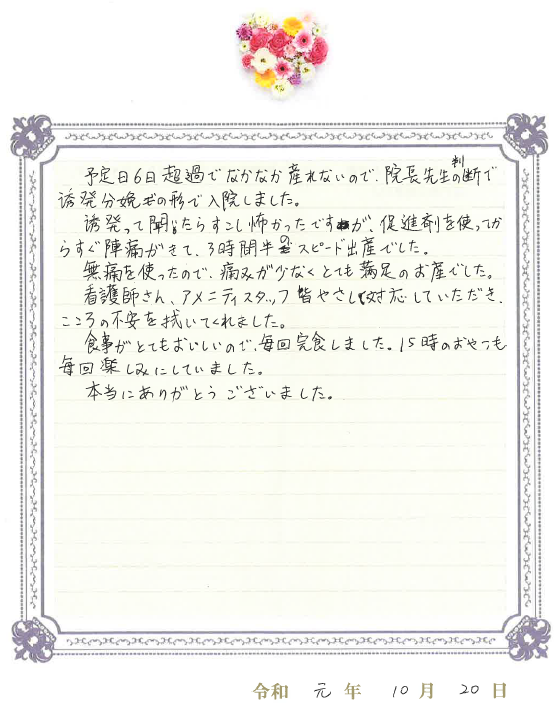 予定日6日超過でなかなか産れないので、院長先生の判断で
誘発分娩の形で入院しました。
誘発って聞いたらすこし怖かったですが、促進剤を使ってか
らすぐ陣痛がきて、3時間半のスピード出産でした。
無痛を使ったので、痛みが少なくとても満足のお産でした。
看護師さん、アメニティスタッフ皆やさしく対応していただき、
こころの不安を拭いてくれました。
食事がとてもおいしいので、毎回完食しました。15時のおやつも
毎回楽しみにしていました。
本当にありがとうございました。
令和 元 年 10 月 20 日